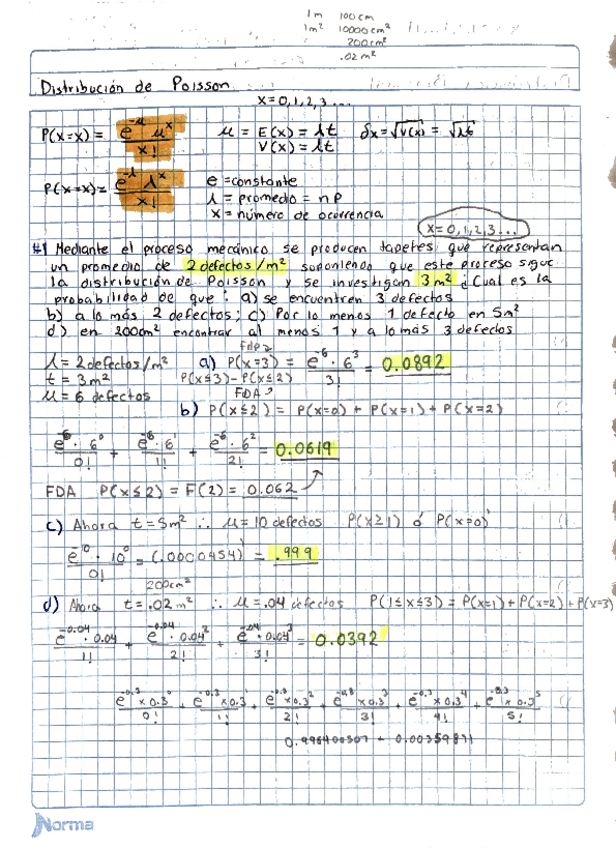 1m 100cm
1m² 10000cm²
200cm²
.02m²
Distribución de Poisson
x=0,1,2,3...
P(x=x) = e^-μ μ^x / x!
μ = E(x) = λt
V(x) = λt
δx = √V(x) = √λt
P(x=x) = e^-λ λ^x / x!
e = constante
λ = promedio = np
x = número de ocurrencia
x=0,1,2,3...
#1 Mediante el proceso mecánico se producen tapetes que representan
un promedio de 2 defectos/m² suponiendo que este proceso sigue
la distribución de Poisson y se investigan 3m² ¿Cual es la
probabilidad de que: a) se encuentren 3 defectos
b) a lo más 2 defectos; c) Por lo menos 1 defecto en 5m²
d) en 200cm² encontrar al menos 1 y a lo más 3 defectos
λ = 2 defectos/m²
t = 3m²
μ = 6 defectos
a) P(x=3) = e^-6 · 6³ / 3! = 0.0892
P(x≤3) - P(x≤2)
FDA
b) P(x≤2) = P(x=0) + P(x=1) + P(x=2)
e^-6 · 6⁰ / 0! + e^-6 · 6 / 1! + e^-6 · 6² / 2! = 0.0619
FDA P(x≤2) = F(2) = 0.062
c) Ahora t = 5m² ∴ μ = 10 defectos P(x≥1) ó P(x=0)'
e^-10 · 10⁰ / 0! = (.0000454)' = .999
200cm²
d) Ahora t = .02 m² ∴ μ = .04 defectos P(1≤x≤3) = P(x=1) + P(x=2) + P(x=3)
e^-0.04 · 0.04 / 1! + e^-0.04 · 0.04² / 2! + e^-.04 · 0.04³ / 3! = 0.0392
e^-0.3 x 0.3⁰ / 0! + e^-0.3 x 0.3 / 1! + e^-0.3 x 0.3² / 2! + e^-0.3 x 0.3³ / 3! + e^-0.3 x 0.3⁴ / 4! + e^-0.3 x 0.3⁵ / 5!
Norma